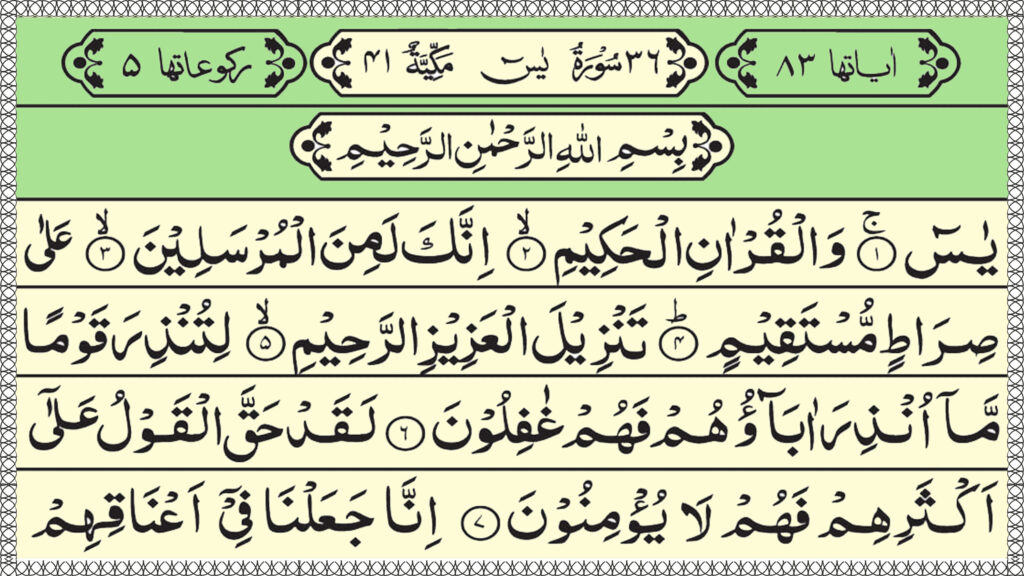 اٰیاتها ٨٣ ٣٦ سُوْرَةُ یٰسٓ مَكِّيَّةٌ ٤١ رکوعاتها ۵
بِسْمِ اللهِ الرَّحْمٰنِ الرَّحِيْمِ
يٰسٓ ۚ﴿۱﴾ وَالْقُرْاٰنِ الْحَكِيْمِ ۙ﴿۲﴾ اِنَّكَ لَمِنَ الْمُرْسَلِيْنَ ۙ﴿۳﴾ عَلٰى
صِرَاطٍ مُّسْتَقِيْمٍ ؕ﴿۴﴾ تَنْزِيْلَ الْعَزِيْزِ الرَّحِيْمِ ۙ﴿۵﴾ لِتُنْذِرَ قَوْمًا
مَّاۤ اُنْذِرَ اٰبَآؤُهُمْ فَهُمْ غٰفِلُوْنَ ﴿۶﴾ لَقَدْ حَقَّ الْقَوْلُ عَلٰٓى
اَكْثَرِهِمْ فَهُمْ لَا يُؤْمِنُوْنَ ﴿۷﴾ اِنَّا جَعَلْنَا فِيْۤ اَعْنَاقِهِمْ